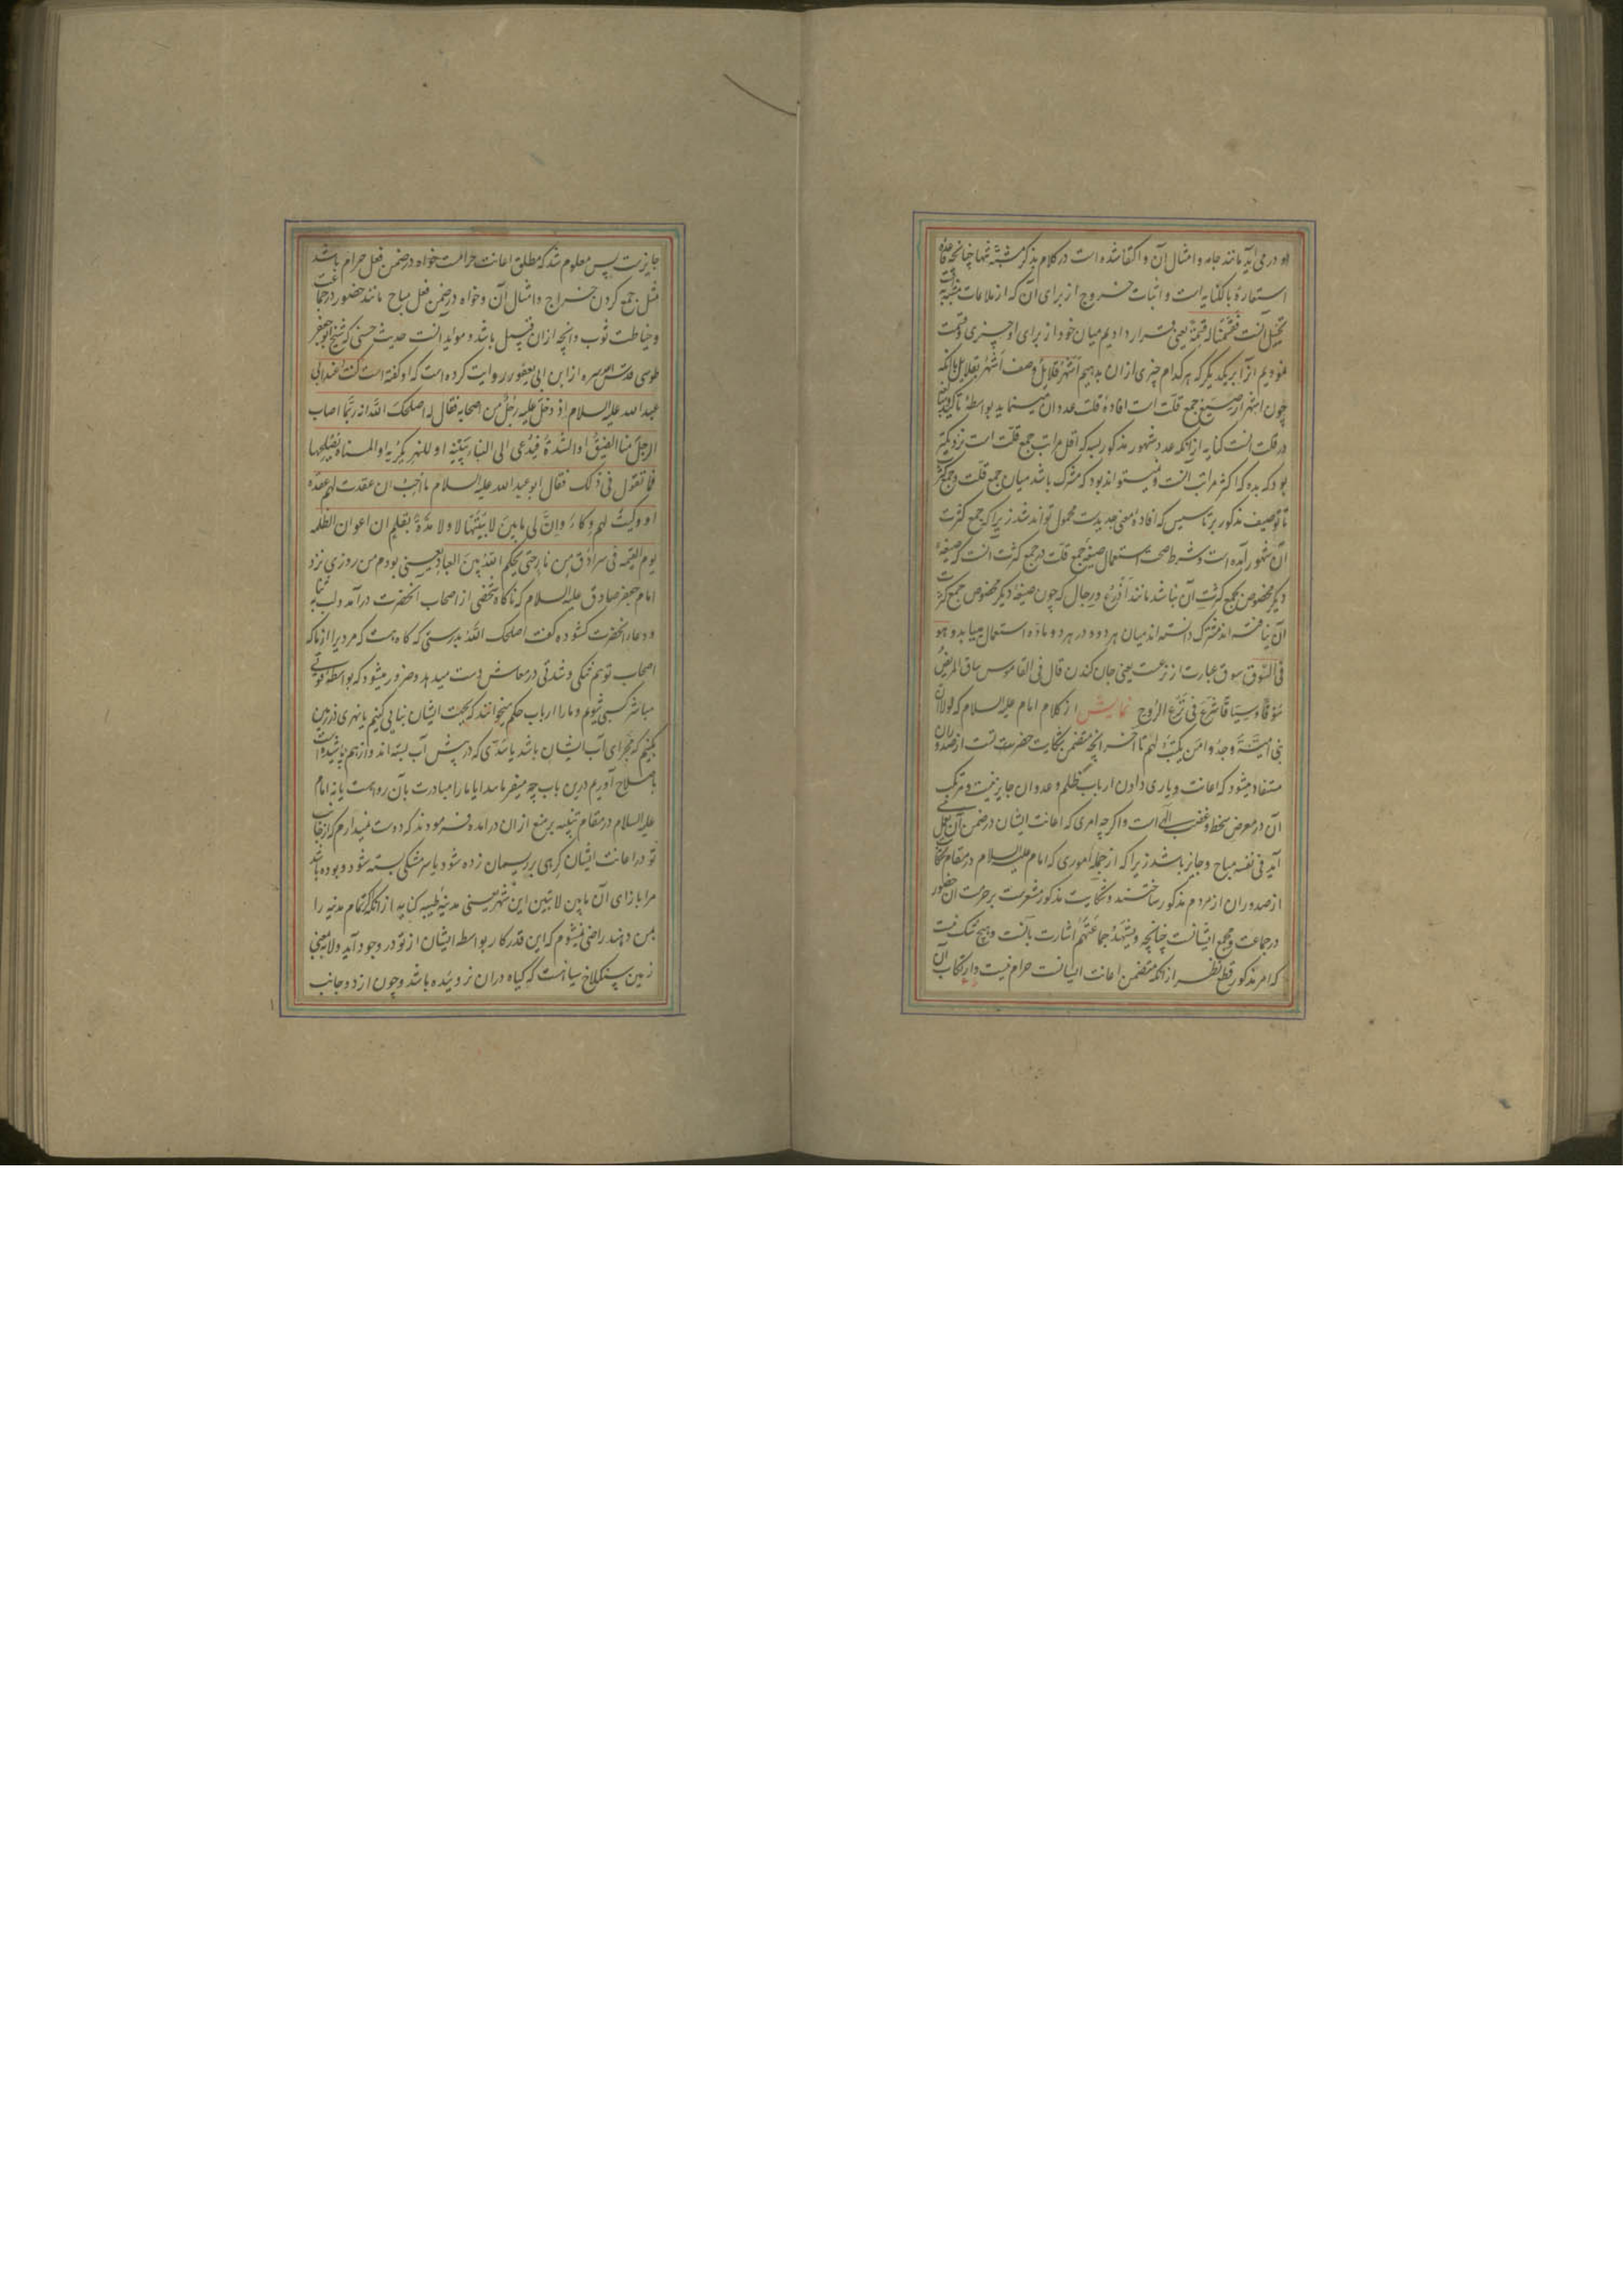 او در می آید مانند جامه و امثال آن و اکتفا شده است در کلام بذکر مشبّه تنها چنانچه قاعدهٔ
استعارهٔ بالکنایه است و اثبات خروج از برای آن که از ملایمات مشبّه به
تخییل است فقسمنا له قسمة یعنی قرار دادیم میان خود از برای او چیزی و قسمت
نمودیم آنرا بر یکدیگر که هر کدام چیزی از آن بدهیم اشهر قلایل وصف اشهر بقلایل با آنکه
چون اشهر از صیغ جمع قلّت است افادهٔ قلّت عدد آن مینماید بواسطهٔ تاکید
در قلت است کنایه از آنکه عدد شهور مذکور بسه که اقل مراتب جمع قلّت است نزدیکتر
بود که بده که اکثر مراتب آنست و میتواند بود که مشترک باشد میان جمع قلّت و جمع کثرت
تا توصیف مذکور بر تاسیس که افادهٔ معنی جدیدست محمول تواند شد زیرا که جمع کثرت
آن شهور آمده است و شرط صحت استعمال صیغهٔ جمع قلّت در جمع کثرت آنست که صیغهٔ
دیگر مخصوص بجمع کثرت آن نباشد مانند اذرع و رجال که چون صیغهٔ دیگر مخصوص جمع کثرت
آن نیافته اند مشترک دانسته اند میان هر دو و در هر دو ماده استعمال مییابد و هو
فی السّوق سوق عبارت از نزعست یعنی جان کندن قال فی القاموس ساق المریض
سوقًا و سیاقا شرع فی نزع الرّوح نمایش از کلام امام علیه السلام که لولا ان
بنی امیّة وجدوا من یکتب لهم تا آخر آنچه متضمن شکایت حضرت است از صدور آن
مستفاد میشود که اعانت و یاری دادن ارباب ظلم و عدوان جایز نیست و مرتکب
آن در معرض سخط و غضب الهی است و اگر چه امری که اعانت ایشان در ضمن آن بعمل
آید فی نفسه مباح و جایز باشد زیرا که از جملهٔ اموری که امام علیه السلام در مقام شکایت
از صدور آن از مردم مذکور ساختند و شکایت مذکور مشعرست بر حرمت آن حضور
در جماعت و مجمع ایشانست چنانچه و یشهد جماعتهم اشارت بآنست و هیچ شک نیست
که امر مذکور قطع نظر از آنکه متضمن اعانت ایشانست حرام نیست و ارتکاب آن
جایزست پس معلوم شد که مطلق اعانت حرامست خواه در ضمن فعل حرام باشد
مثل جمع کردن خراج و امثال آن و خواه در ضمن فعل مباح مانند حضور در جماعت
و خیاطت ثوب و آنچه از آن قبیل باشد و موید آنست حدیث حسنی که شیخ ابوجعفر
طوسی قدّس سره از ابن ابی یعفور روایت کرده است که او گفته است کنت عند ابی
عبد الله علیه السلام اذ دخل علیه رجل من اصحابه فقال له اصلحک الله انه ربّما اصاب
الرجل منا الضیق او الشدّة فیدعی الی البناء یبنیه او للنهر یکریه او المسناة یصلحها
فما تقول فی ذلک فقال ابو عبد الله علیه السلام ما احبّ ان عقدت لهم عقده
او وکیتُ لهم وکاءً و ان لی ما بین لابتیها لا و لا مدّة بقلم ان اعوان الظلمه
یوم القیمه فی سرادق من نار حتی یحکم الله بین العباد یعنی بودم من روزی نزد
امام جعفر صادق علیه السلام که ناگاه شخصی از اصحاب آنحضرت درآمد و لب به ثنا
و دعاء آنحضرت گشوده گفت اصلحک الله بدرستی که گاه هست که مردیرا از ما که
اصحاب توییم تنگی و شدتی در معاش دست میدهد و ضرور میشود که بواسطهٔ قوتی
مباشر کسبی شویم و ما را ارباب حکم میخوانند که بجهت ایشان بنایی کنیم یا نهری در زمین
بکنیم که مجرای آب ایشان باشد یا سدّی که در پیش آب بسته اند و از هم پاشیده است
باصلاح آوریم درین باب چه میفرمایید آیا ما را مبادرت بآن رواست یا نه امام
علیه السلام در مقام تنبیه بر منع از آن درآمده فرمودند که دوست نمیدارم که از جانب
تو در اعانت ایشان گرهی بر ریسمان زده شود یا سر مشکی بسته شود و بوده باشد
مرا بازای آن ما بین لابتین این شهر یعنی مدینهٔ طیبه کنایه از آنکه اگر تمام مدینه را
بمن دهند راضی نمیشوم که این قدر کار بواسطه ایشان از تو در وجود آید و لابه بمعنی
زمین سنگلاخ سیاهست که گیاه در آن نروییده باشد و چون از دو جانب